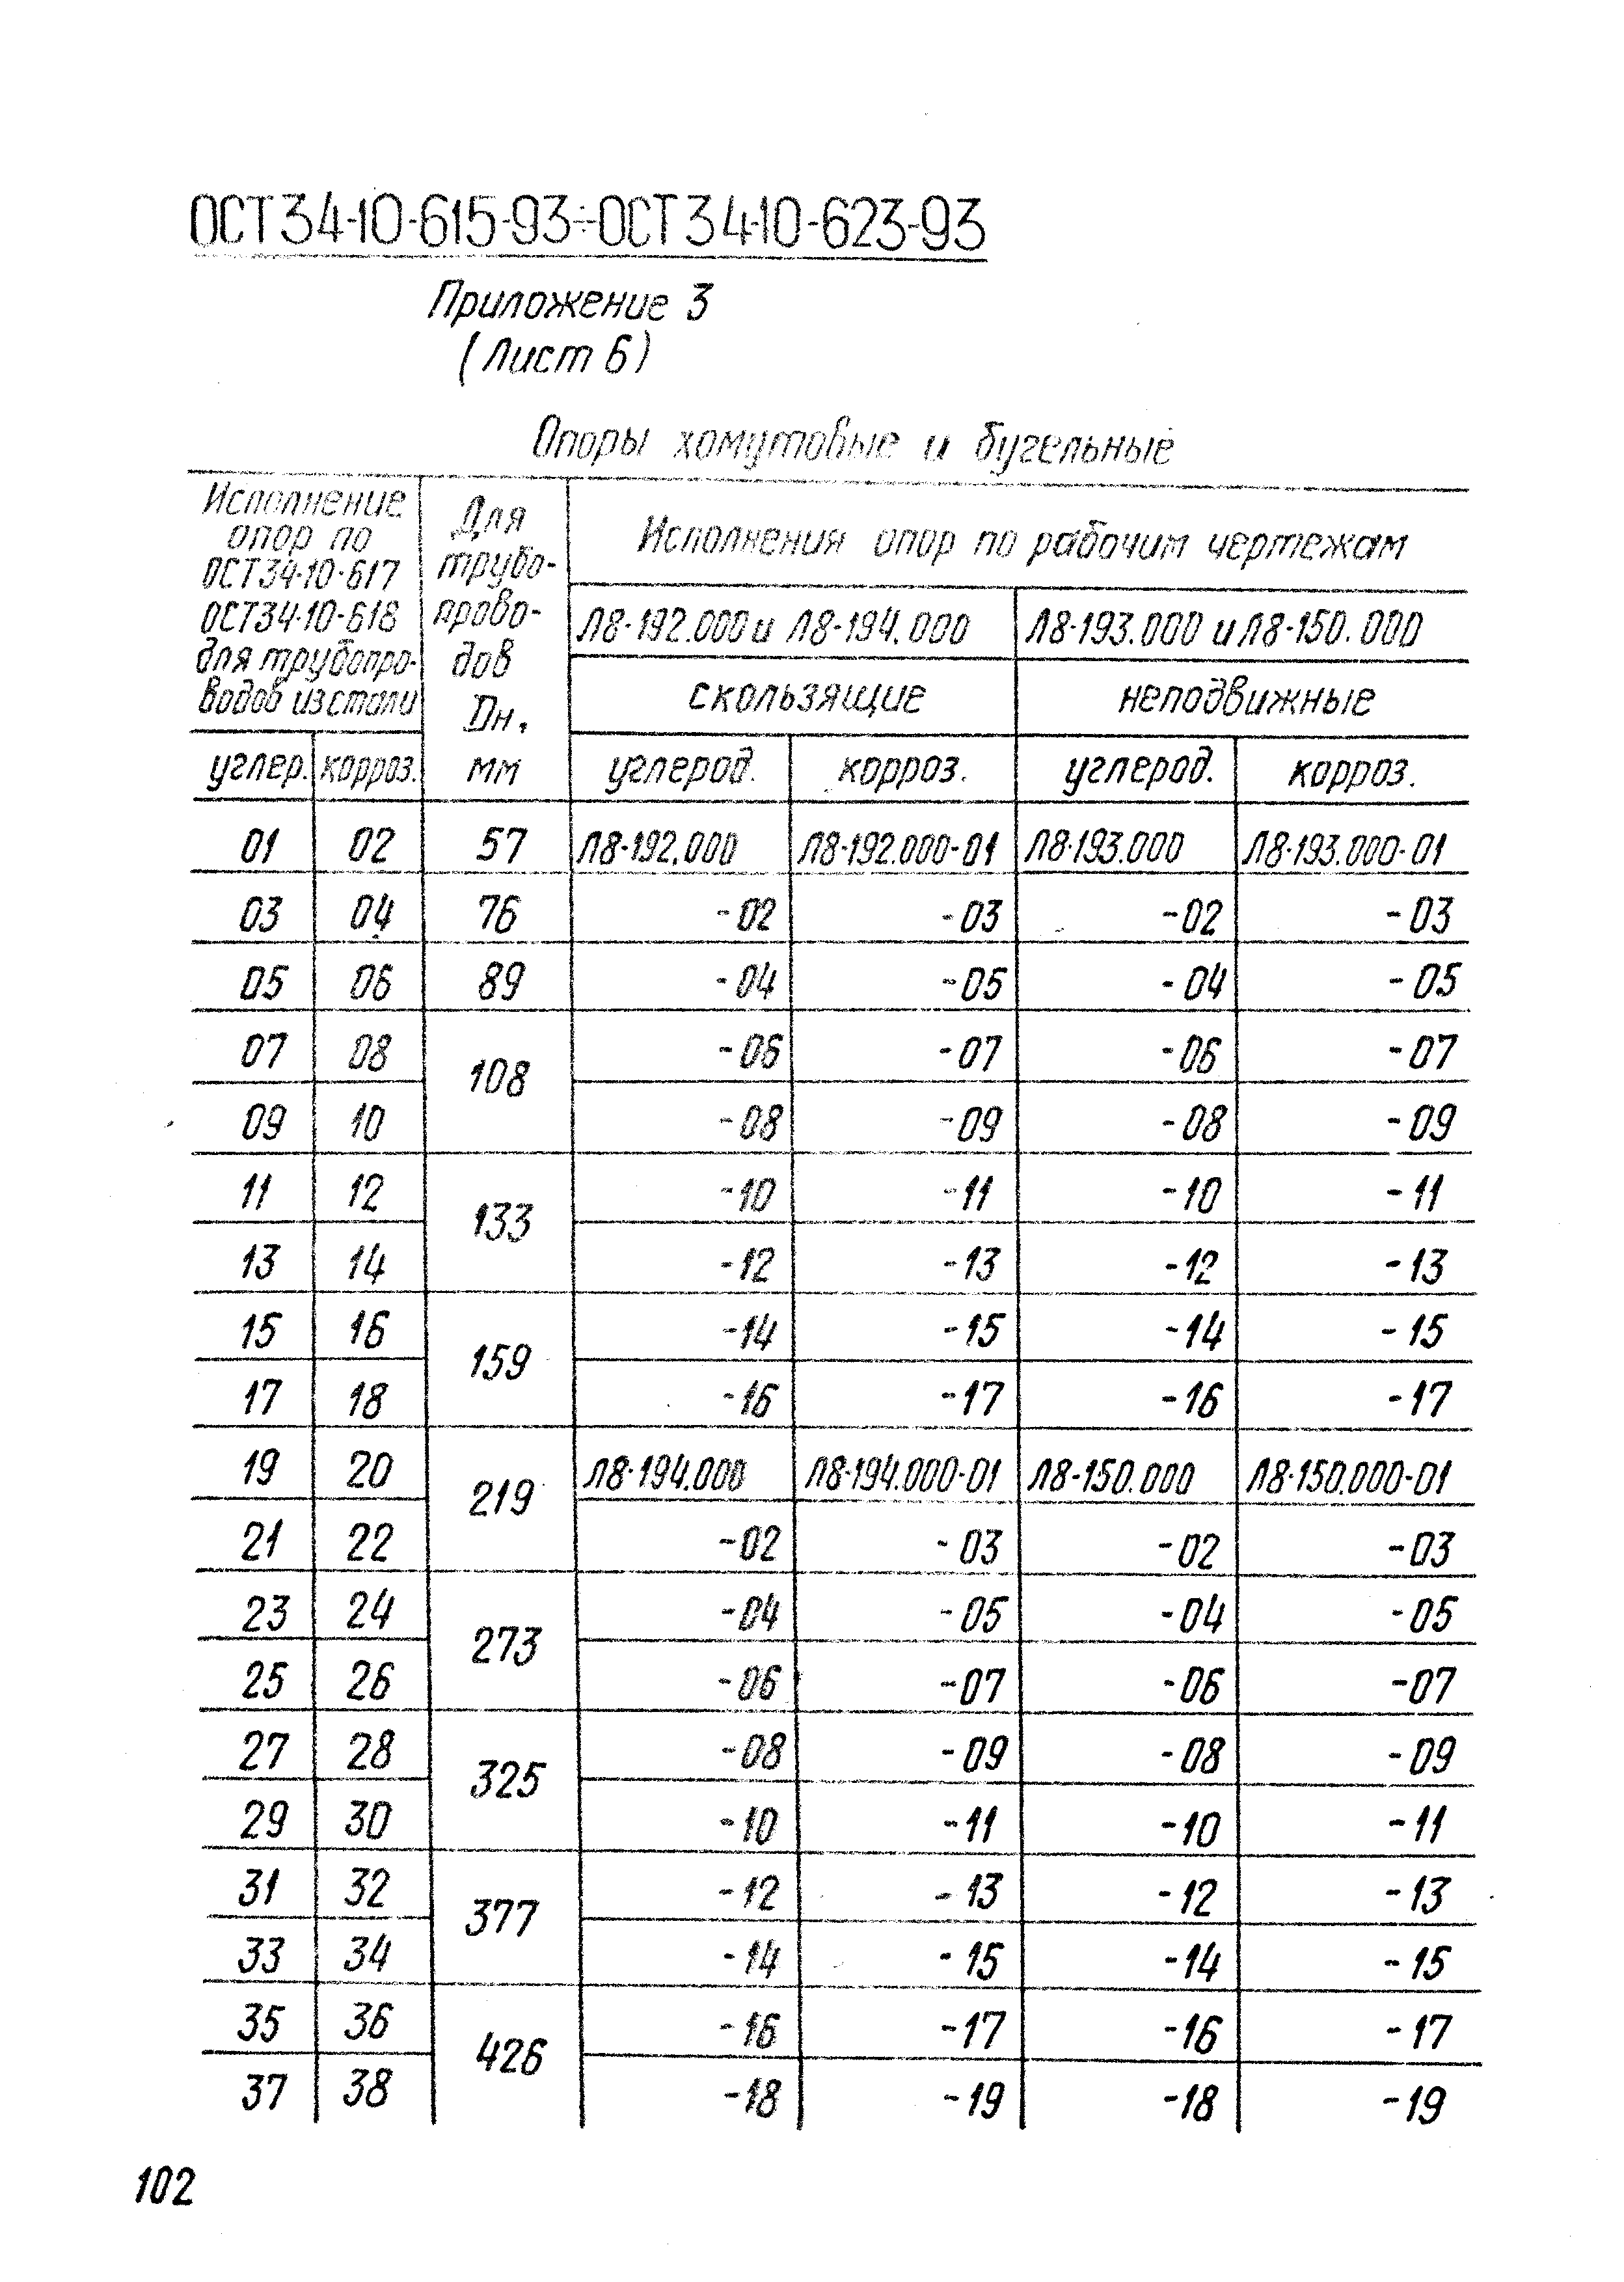 ОСТ 34-10-615-93÷ОСТ 34-10-623-93
Приложение 3
(Лист 6)
Опоры хомутовые и бугельные
Исполнение опор по ОСТ34-10-617 ОСТ34-10-618 для трубопро-водов из стали
Для трубо-прово-дов Dн, мм
Исполнения опор по рабочим чертежам
Л8-192.000 и Л8-194.000 Л8-193.000 и Л8-150.000
скользящие неподвижные
углер. корроз. углерод. корроз. углерод. корроз.
01 02 57 Л8-192.000 Л8-192.000-01 Л8-193.000 Л8-193.000-01
03 04 76 -02 -03 -02 -03
05 06 89 -04 -05 -04 -05
07 08 108 -06 -07 -06 -07
09 10 -08 -09 -08 -09
11 12 133 -10 -11 -10 -11
13 14 -12 -13 -12 -13
15 16 159 -14 -15 -14 -15
17 18 -16 -17 -16 -17
19 20 219 Л8-194.000 Л8-194.000-01 Л8-150.000 Л8-150.000-01
21 22 -02 -03 -02 -03
23 24 273 -04 -05 -04 -05
25 26 -06 -07 -06 -07
27 28 325 -08 -09 -08 -09
29 30 -10 -11 -10 -11
31 32 377 -12 -13 -12 -13
33 34 -14 -15 -14 -15
35 36 426 -16 -17 -16 -17
37 38 -18 -19 -18 -19
102